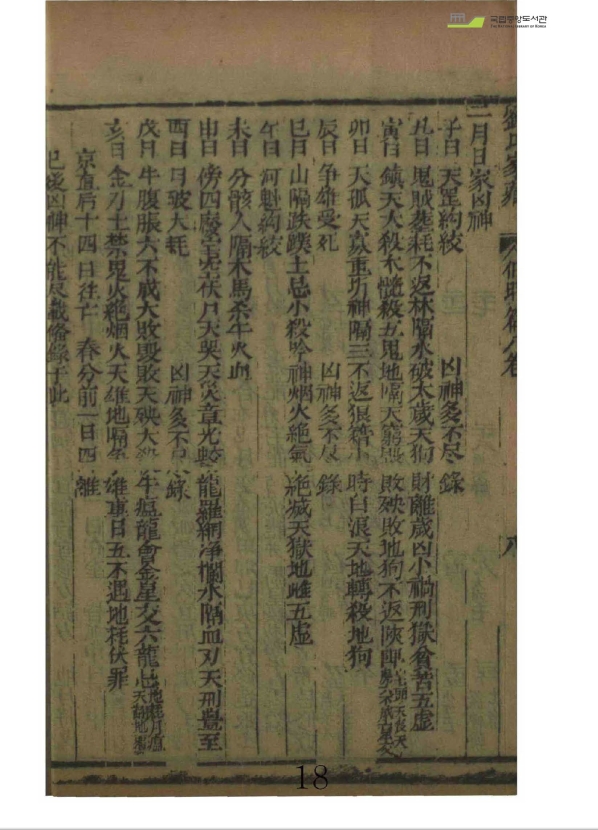 國立中央도서관
THE NATIONAL LIBRARY OF KOREA
八
二月日家凶神
子日 天罡絢絞 凶神多不尽錄
丑日 鬼賊基耗不返林隔水破大歲天狗 財離歲凶小禍刑獄貧苦五虛
寅日 鎮天大殺木髓殺五鬼地隔天窮 敗殃敗地狗不返
卯日 天孤天哀重折神隔三不返狼籍小時白浪天地轉殺地狗
辰日 争雄受死 凶神多不尽錄
巳日 山隔跌蹼土忌小殺吟神烟火絶氣 絶滅天獄地雌五虛
午日 河魁絢絞
未日 分骸人隔木馬杀午火血
申日 傍四廢官空伏尸天哭天災章光 龍羅網淨欄水隔血刃天刑 至
酉日 日破大耗 凶神多不尽錄
戌日 牛腹脹六不成大敗毀敗天殃大殺 牛瘟龍會金星交六龍忌
亥日 金刀土禁鬼火絶烟火天雄地隔 雄 日五不遇地耗伏罪
京直后十四日往亡 春分前一日四離
已後凶神不能尽載畧錄于此
18